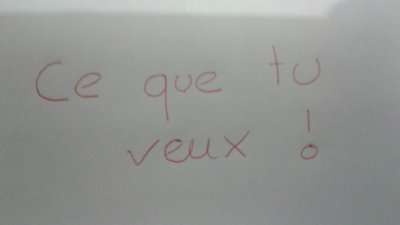 Ce que tu
veux !